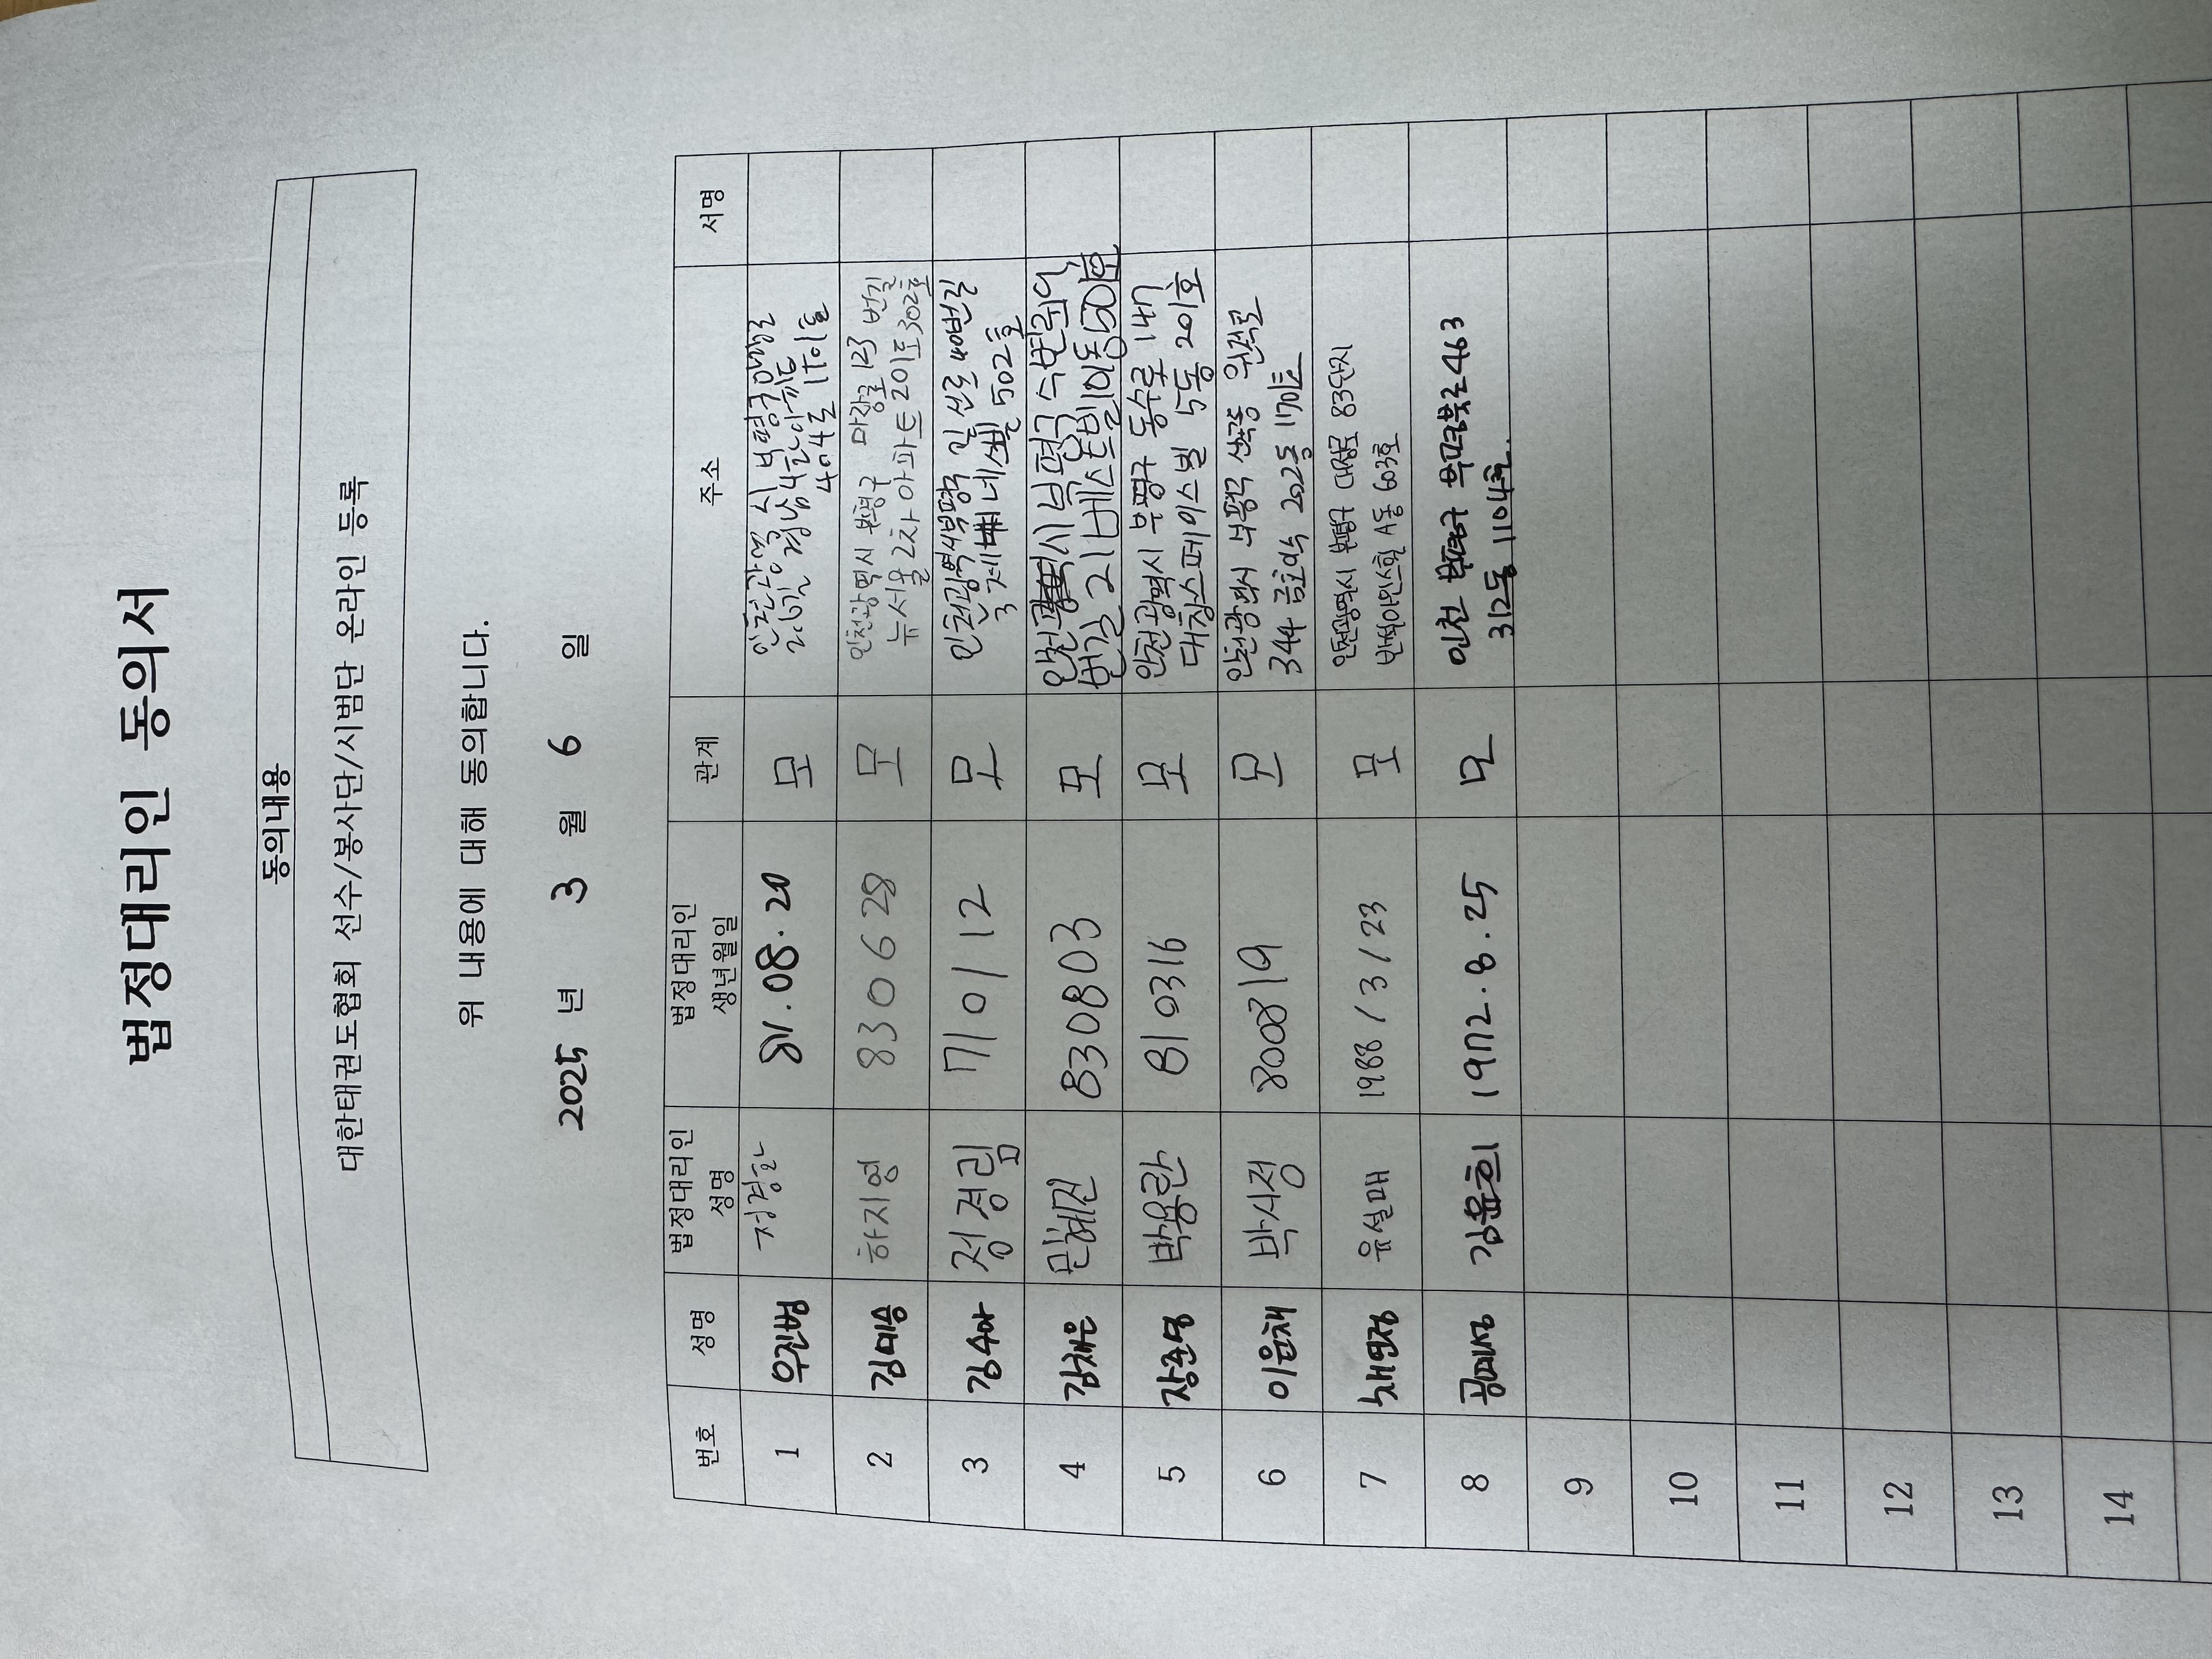 법정대리인 동의서
동의내용
대한태권도협회 선수/봉사단/시범단 온라인 등록
위 내용에 대해 동의합니다.
2025 년 3 월 6 일
번호 성명 법정대리인 성명 법정대리인 생년월일 관계 주소 서명
1 우진범 정경화 81.08.20 모 인천광역시 부평구
2 김미승 하지영 830628 모 인천광역시 부평구 마장로 123 번길
뉴서울2차아파트 201동 302호
3 김수아 정정림 710112 모 인천광역시 부평구 일신로 40번길
502호
4 김채은 민혜진 830803 모 인천광역시 부평구
번길 21 베스트빌
5 장준영 박용란 810316 모 인천광역시 부평구 동수로 147
대창스페이스빌 5동 201호
6 이윤채 박시정 800819 모 인천광역시 부평구 산곡동 원적로
344 금호이수 202동
7 노재연정 유설매 1988/3/23 모 인천광역시 부평구 대정로 83
A동 603호
8 김윤희 1972.8.25 모 인천 부평구 463
312동 1104호
9
10
11
12
13
14